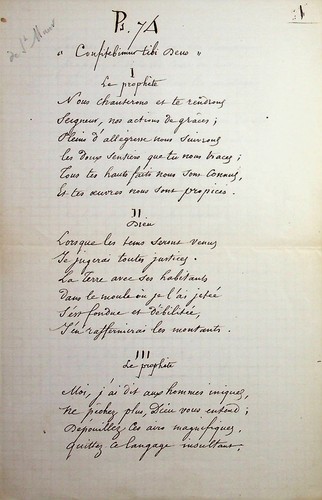 Ps. 74
de St Maur
1
" Confitebimur tibi Deus "
I
Le prophète
Nous chanterons et te rendrons
Seigneur, nos actions de grâces ;
Pleins d'allégresse nous suivrons
Les doux sentiers que tu nous traces ;
Tous tes hauts faits nous sont connus,
Et tes œuvres nous sont propices.
II
Dieu
Lorsque les tems seront venus
Je jugerai toutes justices.
La Terre avec ses habitants
Dans le moule où je l'ai jetée
S'est fondue et débilitée,
J'en raffermirai les montants.
III
Le prophète
Moi, j'ai dit aux hommes iniques,
Ne péchez plus, Dieu vous entend ;
Dépouillez ces airs magnifiques,
Quittez ce langage insultant.